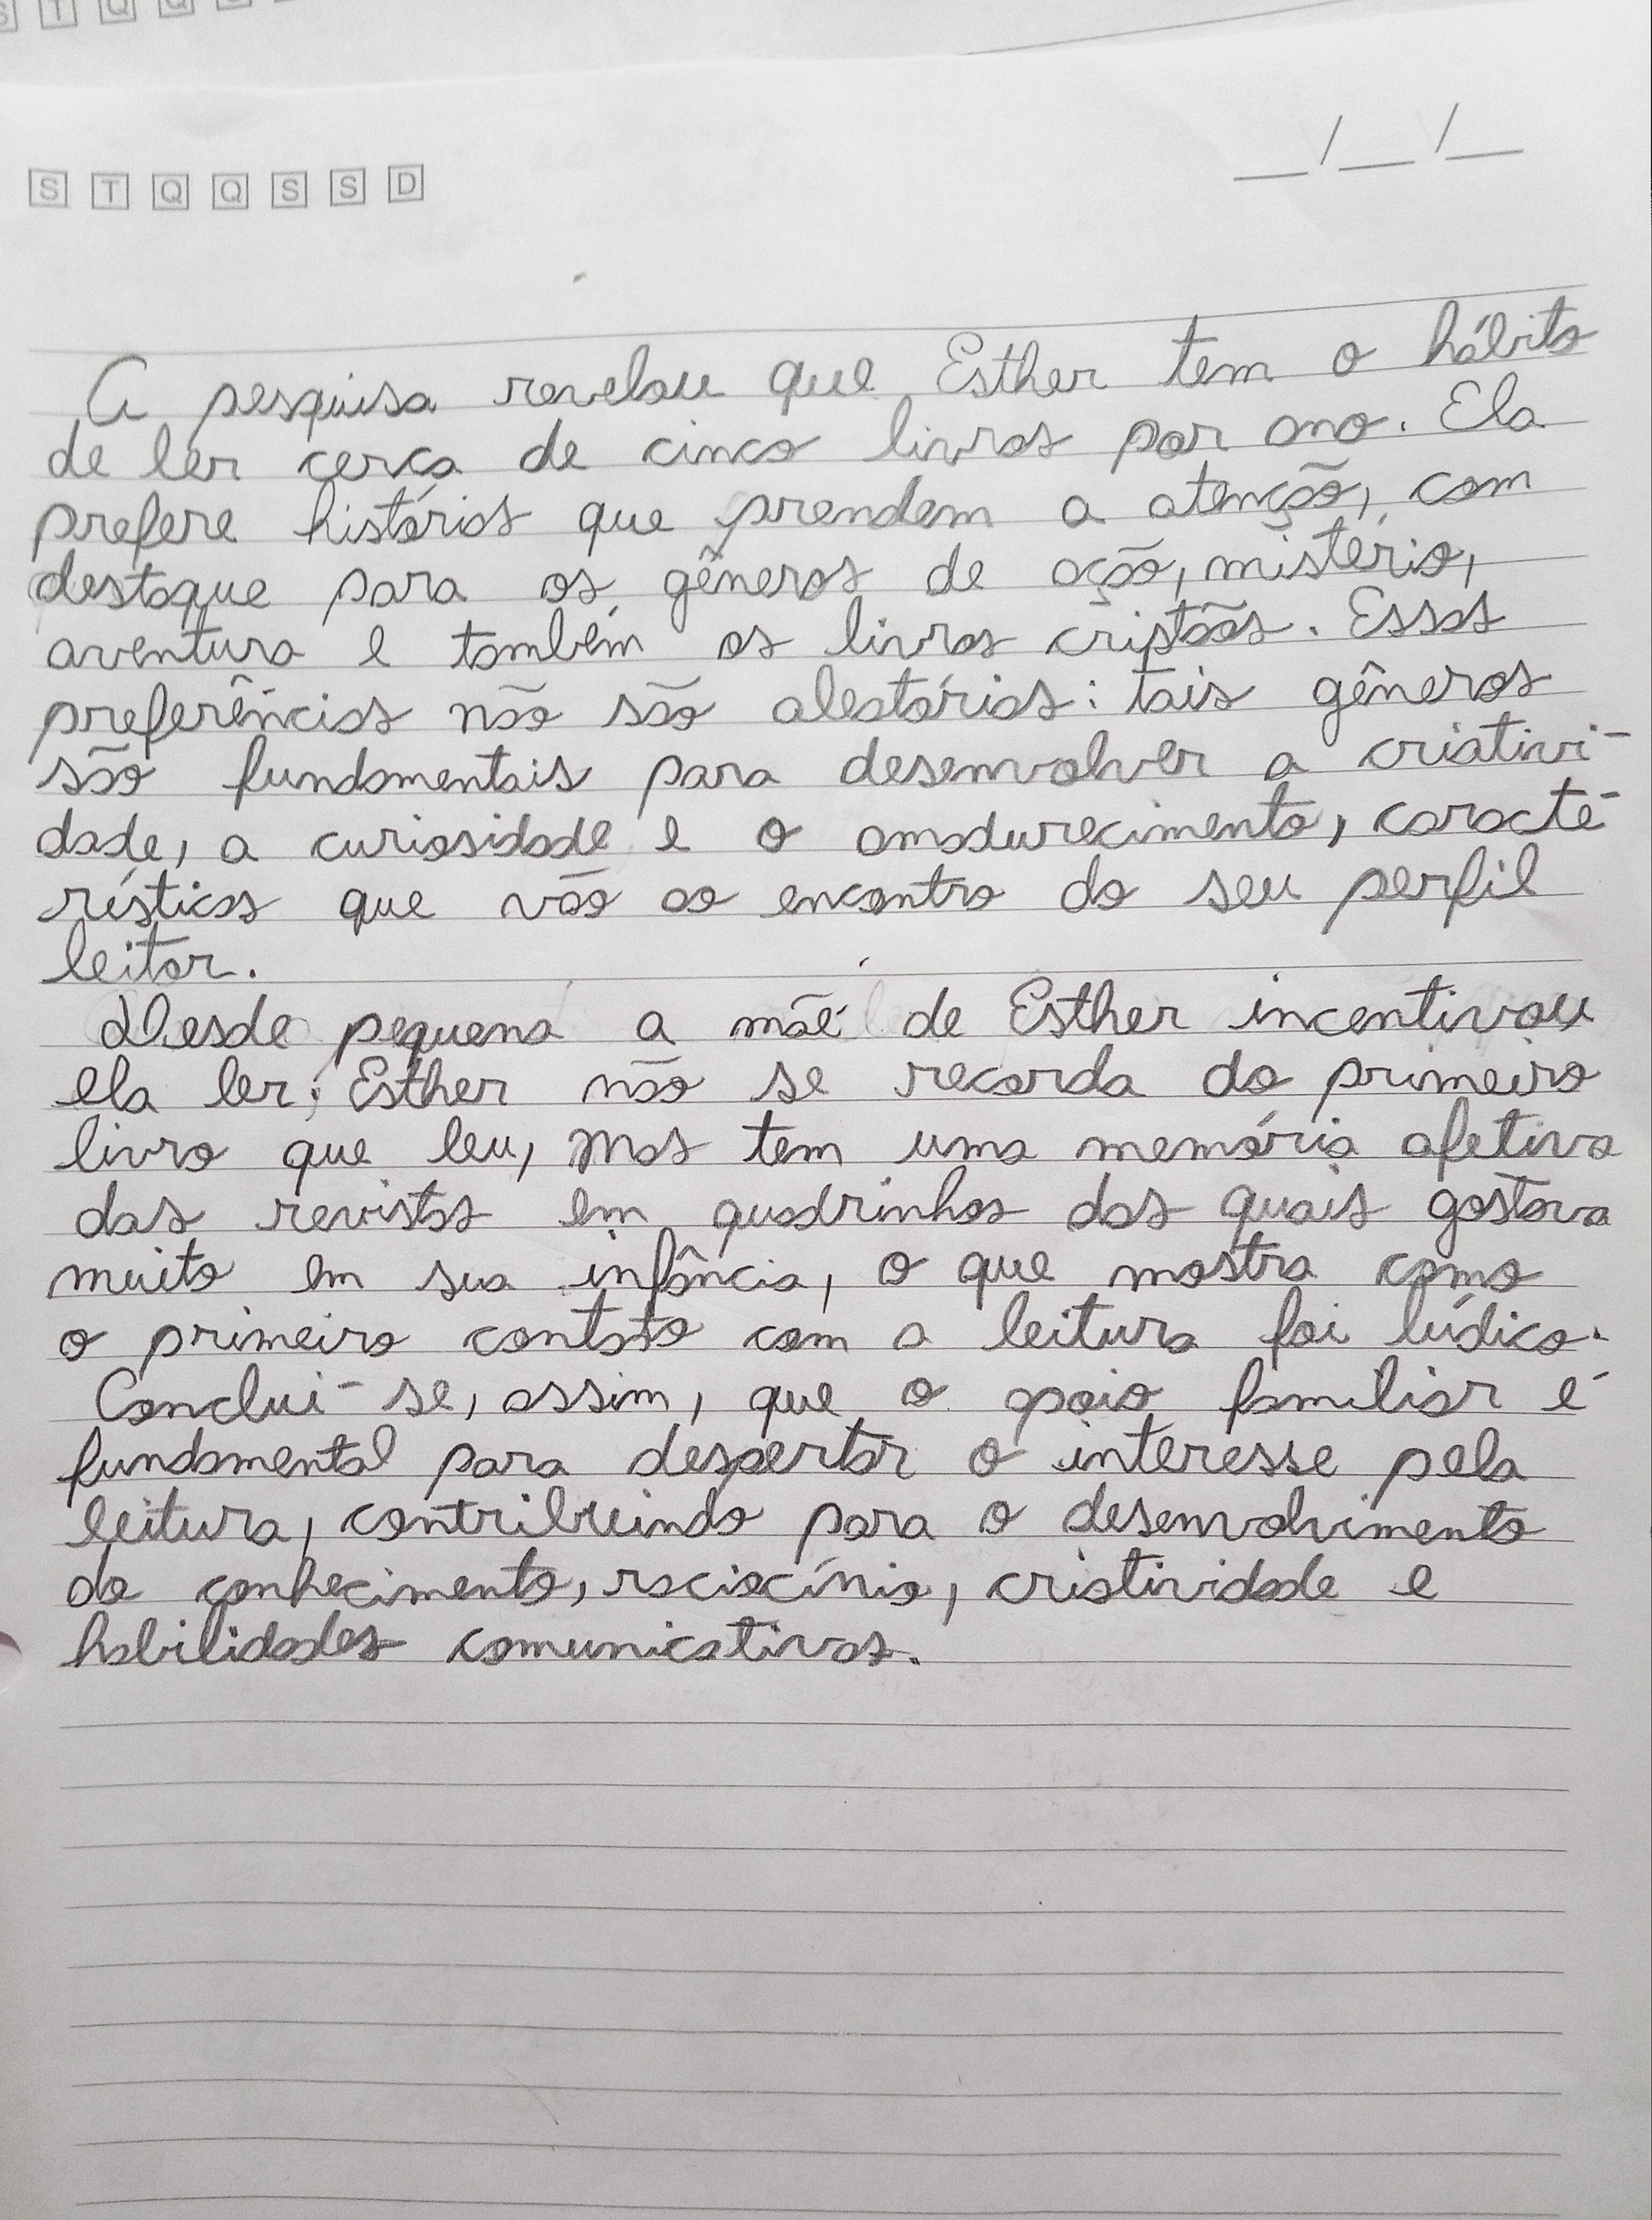 S T Q Q S S D
__/__/__
A pesquisa revelou que Esther tem o hábito
de ler cerca de cinco livros por ano. Ela
prefere histórias que prendem a atenção, com
destaque para os gêneros de ação, mistério,
aventura e também os livros cristãos. Essas
preferências não são aleatórias: tais gêneros
são fundamentais para desenvolver a criativi-
dade, a curiosidade e o amadurecimento, caracte-
rísticas que vão ao encontro do seu perfil
leitor.
Desde pequena a mãe de Esther incentivou
ela ler; Esther não se recorda do primeiro
livro que leu, mas tem uma memória afetiva
das revistas em quadrinhos das quais gostava
muito em sua infância, o que mostra como
o primeiro contato com a leitura foi lúdico.
Conclui-se, assim, que o apoio familiar é
fundamental para despertar o interesse pela
leitura, contribuindo para o desenvolvimento
do conhecimento, raciocínio, criatividade e
habilidades comunicativas.